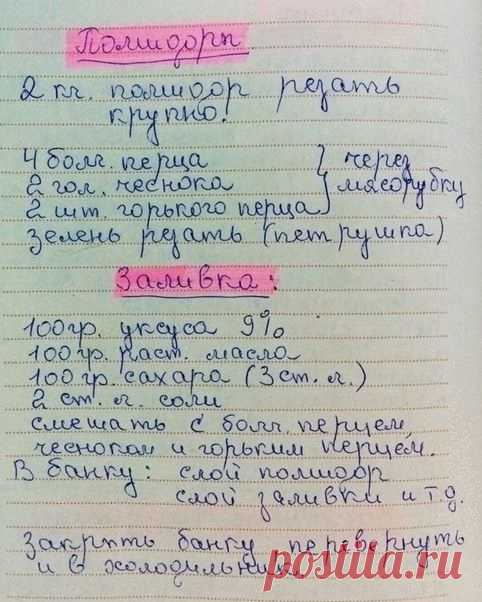 Помидоры
2 кг. помидор резать
крупно.
4 болг. перца } через
2 гол. чеснока } мясорубку
2 шт. горького перца
зелень резать (петрушка)
Заливка:
100 гр. уксуса 9%
100 гр. раст. масла
100 гр. сахара (3 ст. л.)
2 ст. л. соли
смешать с болг. перцем,
чесноком и горьким перцем.
В банку: слой помидор
слой заливки и т.д.
Закрыть банку перевернуть
и в холодильник
postila.ru